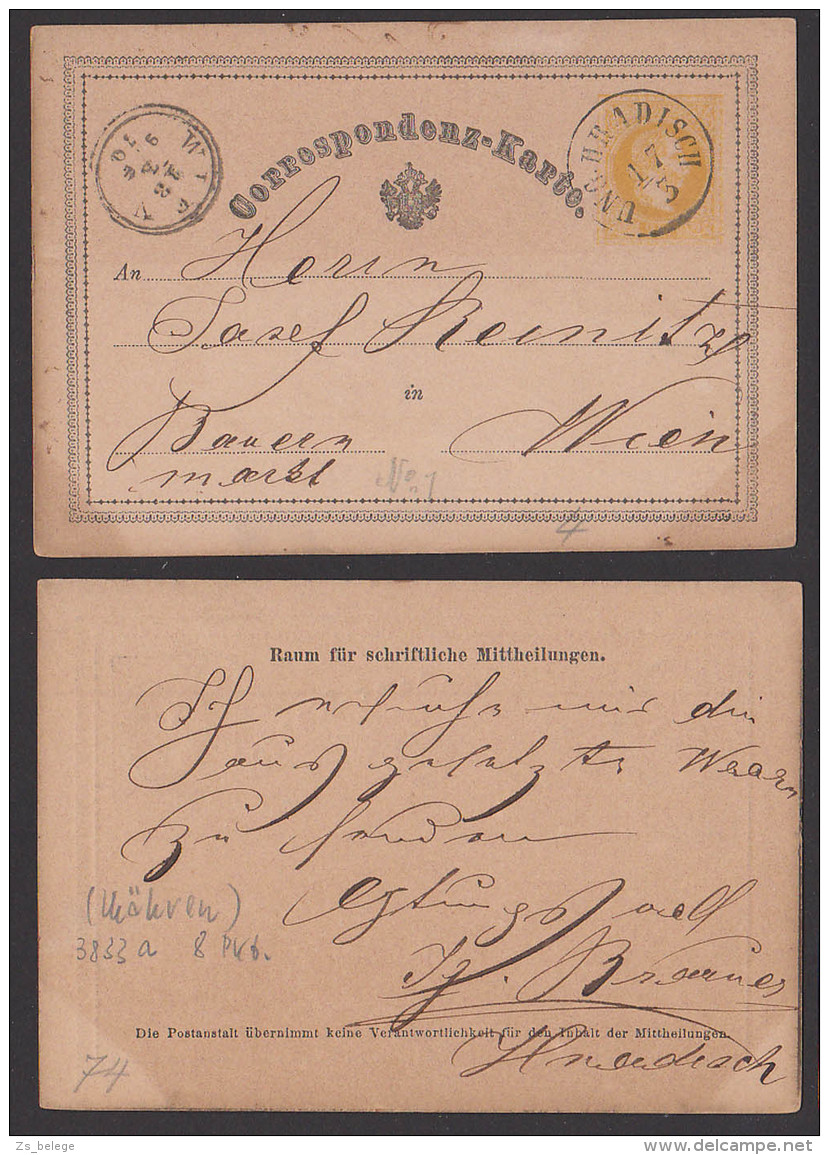 Correspondenz-Karte.
UNG: HRADISCH
17/3
WIEN
An Herrn
Josef Reinitz
in
Bauern Wien
markt No 1
4
Raum für schriftliche Mittheilungen.
Ich ersuche mir die
aus gesetzte Waare
zu senden
Achtungsvoll
Ig. Brauner
(Mähren)
3833 a 8 Pkt.
Die Postanstalt übernimmt keine Verantwortlichkeit für den Inhalt der Mittheilungen.
Hradisch
74
Zs_belege
delcampe.net